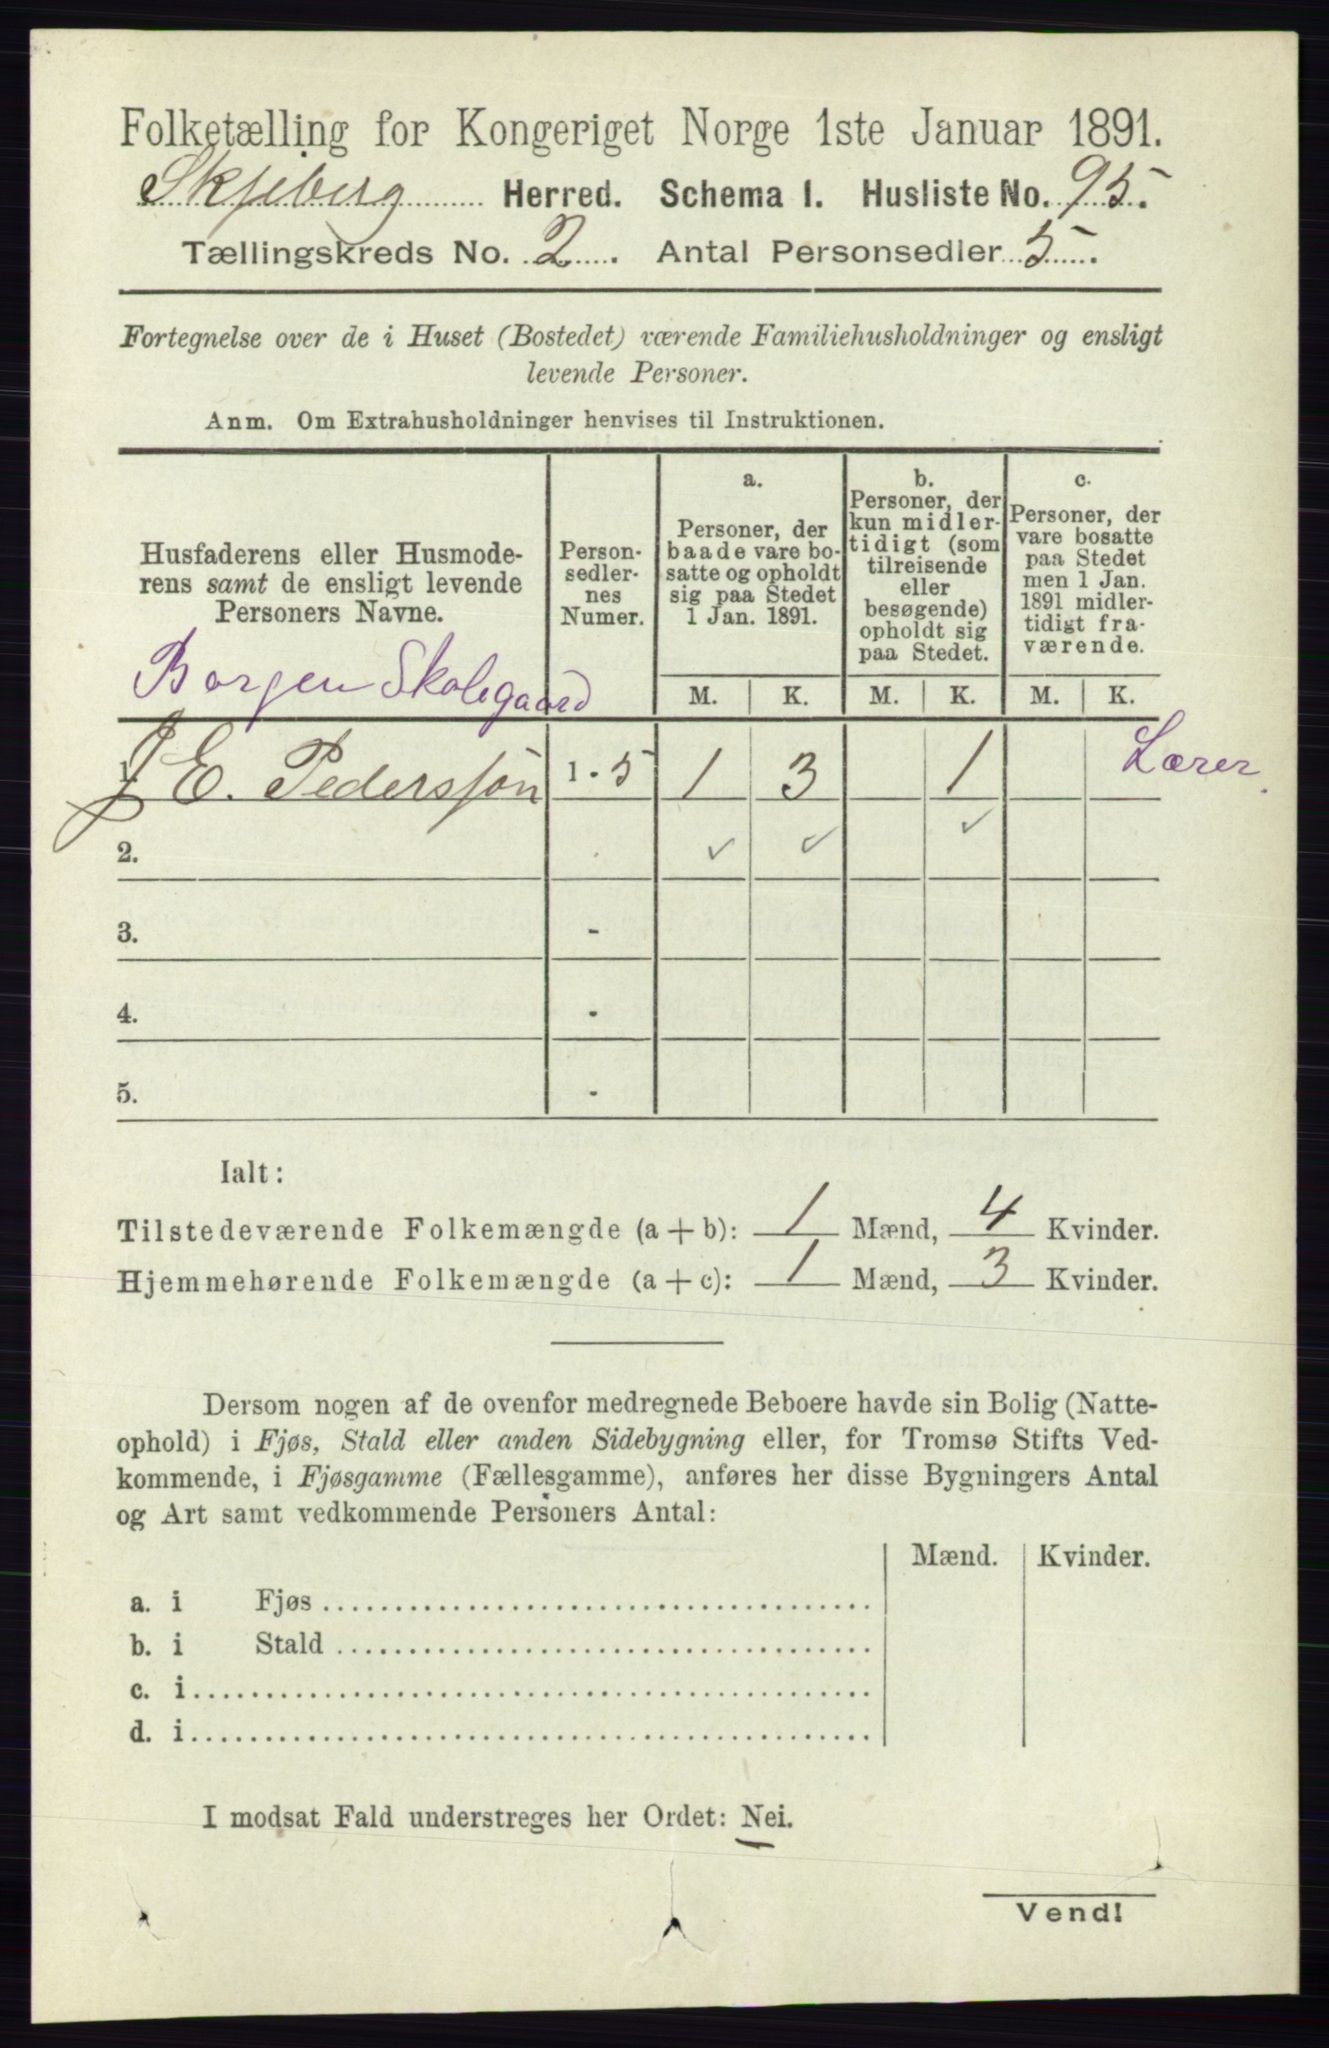 Folketælling for Kongeriget Norge 1ste Januar 1891.
Skjeberg Herred. Schema I. Husliste No. 95.
Tællingskreds No. 2. Antal Personsedler 5.
Fortegnelse over de i Huset (Bostedet) værende Familiehusholdninger og ensligt
levende Personer.
Anm. Om Extrahusholdninger henvises til Instruktionen.
Husfaderens eller Husmode-
rens samt de ensligt levende
Personers Navne.
Borgen Skolegaard
Person-
sedler-
nes
Numer.
a.
Personer, der
baade vare bo-
satte og opholdt
sig paa Stedet
1 Jan. 1891.
M. K.
b.
Personer, der
kun midler-
tidigt (som
tilreisende
eller
besøgende)
opholdt sig
paa Stedet.
M. K.
c.
Personer, der
vare bosatte
paa Stedet
men 1 Jan.
1891 midler-
tidigt fra-
værende.
M. K.
1. J E. Pederssøn 1 - 5 1 3 1 Lærer
2. ✓ ✓ ✓
3. -
4. -
5. -
Ialt:
Tilstedeværende Folkemængde (a + b): 1 Mænd, 4 Kvinder.
Hjemmehørende Folkemængde (a + c): 1 Mænd, 3 Kvinder.
Dersom nogen af de ovenfor medregnede Beboere havde sin Bolig (Natte-
ophold) i Fjøs, Stald eller anden Sidebygning eller, for Tromsø Stifts Ved-
kommende, i Fjøsgamme (Fællesgamme), anføres her disse Bygningers Antal
og Art samt vedkommende Personers Antal:
Mænd. Kvinder.
a. i Fjøs
b. i Stald
c. i
d. i
I modsat Fald understreges her Ordet: Nei.
Vend!